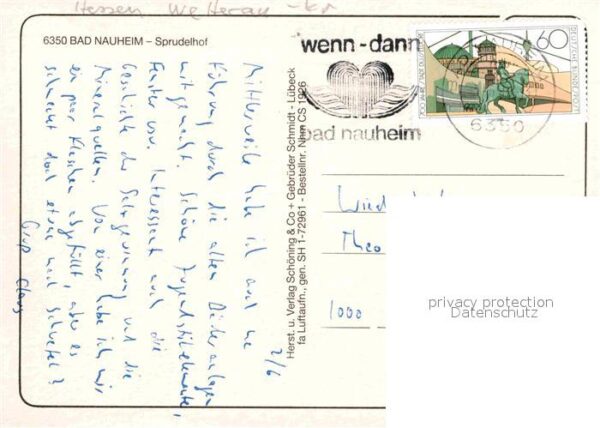 Hessen Wetterau-Kr
6350 BAD NAUHEIM – Sprudelhof
wenn-dann
bad nauheim
60
DEUTSCHE BUNDESPOST
6350
2/6
Mittlerweile habe ich auch ne
Führung durch die alten Bäderanlagen
mitgemacht. Schöne Jugendstilelemente,
Fenster usw. Interessant auch die
Geschichte der Salzgewinnung und die
Mineralquellen. Von einer habe ich mir
ein paar Fläschen abgefüllt, aber es
schmeckt doch etwas nach Schwefel?
Gruß Claus
Herst. u. Verlag Schöning & Co + Gebrüder Schmidt - Lübeck
fa Luftaufn., gen. SH 1-72961 - Bestellnr. Nhm CS 1926
Theo
1000
privacy protection
Datenschutz